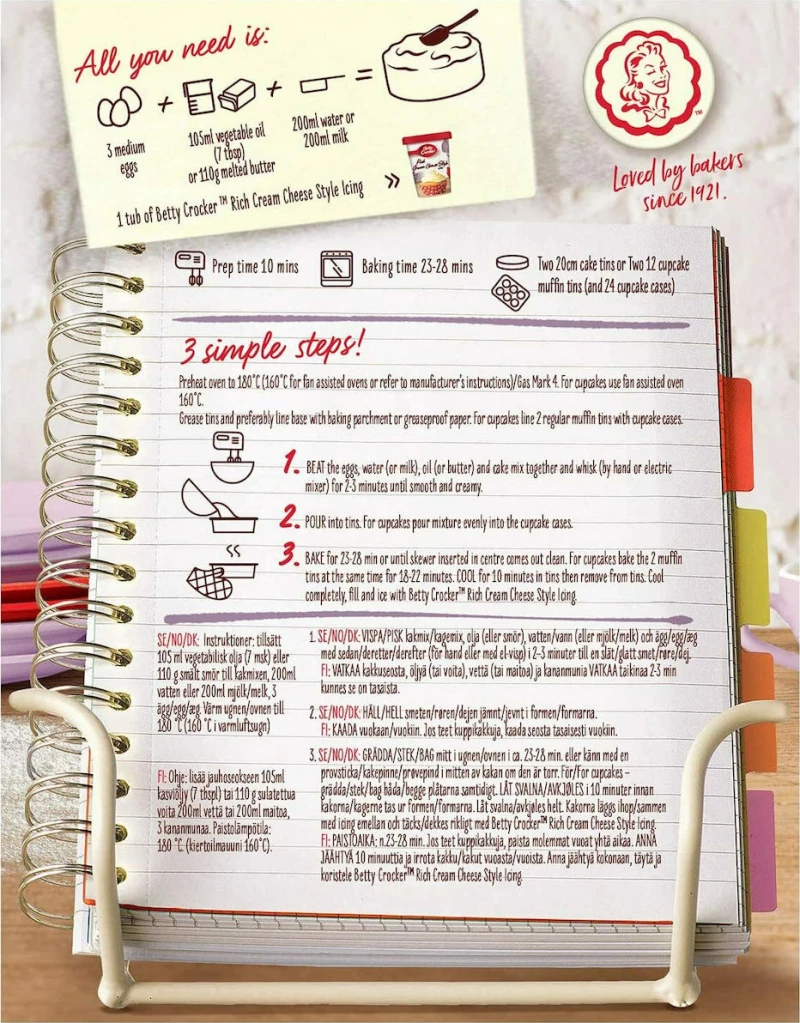 All you need is:
3 medium
eggs
105ml vegetable oil
(7 tbsp)
or 110g melted butter
200ml water or
200ml milk
1 tub of Betty Crocker™ Rich Cream Cheese Style Icing
Betty Crocker
TM
Loved by bakers
since 1921.
Prep time 10 mins
Baking time 23-28 mins
Two 20cm cake tins or Two 12 cupcake
muffin tins (and 24 cupcake cases)
3 simple steps!
Preheat oven to 180°C (160°C for fan assisted ovens or refer to manufacturer's instructions)/Gas Mark 4. For cupcakes use fan assisted oven
160°C.
Grease tins and preferably line base with baking parchment or greaseproof paper. For cupcakes line 2 regular muffin tins with cupcake cases.
1. BEAT the eggs, water (or milk), oil (or butter) and cake mix together and whisk (by hand or electric
mixer) for 2-3 minutes until smooth and creamy.
2. POUR into tins. For cupcakes pour mixture evenly into the cupcake cases.
3. BAKE for 23-28 min or until skewer inserted in centre comes out clean. For cupcakes bake the 2 muffin
tins at the same time for 18-22 minutes. COOL for 10 minutes in tins then remove from tins. Cool
completely, fill and ice with Betty Crocker™ Rich Cream Cheese Style Icing.
SE/NO/DK: Instruktioner: tillsätt
105 ml vegetabilisk olja (7 msk) eller
110 g smält smör till kakmixen, 200ml
vatten eller 200ml mjölk/melk, 3
ägg/egg/æg. Värm ugnen/ovnen till
180 °C (160 °C i varmluftsugn)
FI: Ohje: lisää jauhoseokseen 105ml
kasviöljy (7 tbspl) tai 110 g sulatettua
voita 200ml vettä tai 200ml maitoa,
3 kananmunaa. Paistolämpötila:
180 °C (kiertoilmauuni 160°C).
1. SE/NO/DK: VISPA/PISK kakmix/kagemix, olja (eller smör), vatten/vann (eller mjölk/melk) och ägg/egg/æg
med sedan/deretter/derefter (för hand eller med el-visp) i 2-3 minuter till en slät/glatt smet/røre/dej.
FI: VATKAA kakkuseosta, öljyä (tai voita), vettä (tai maitoa) ja kananmunia VATKAA taikinaa 2-3 min
kunnes se on tasaista.
2. SE/NO/DK: HÄLL/HELL smeten/røren/dejen jämnt/jevnt i formen/formarna.
FI: KAADA vuokaan/vuokiin. Jos teet kuppikakkuja, kaada seosta tasaisesti vuokiin.
3. SE/NO/DK: GRÄDDA/STEK/BAG mitt i ugnen/ovnen i ca. 23-28 min. eller känn med en
provsticka/kakepinne/prøvepind i mitten av kakan om den är torr. För/For cupcakes -
grädda/stek/bag båda/begge plåtarna samtidigt. LÅT SVALNA/AVKJØLES i 10 minuter innan
kakorna/kagerne tas ur formen/formarna. Låt svalna/avkjøles helt. Kakorna läggs ihop/sammen
med icing emellan och täcks/dekkes rikligt med Betty Crocker™ Rich Cream Cheese Style Icing.
FI: PAISTOAIKA: n.23-28 min. Jos teet kuppikakkuja, paista molemmat vuoat yhtä aikaa. ANNA
JÄÄHTYÄ 10 minuuttia ja irrota kakku/kakut vuoasta/vuoista. Anna jäähtyä kokonaan, täytä ja
koristele Betty Crocker™ Rich Cream Cheese Style Icing.